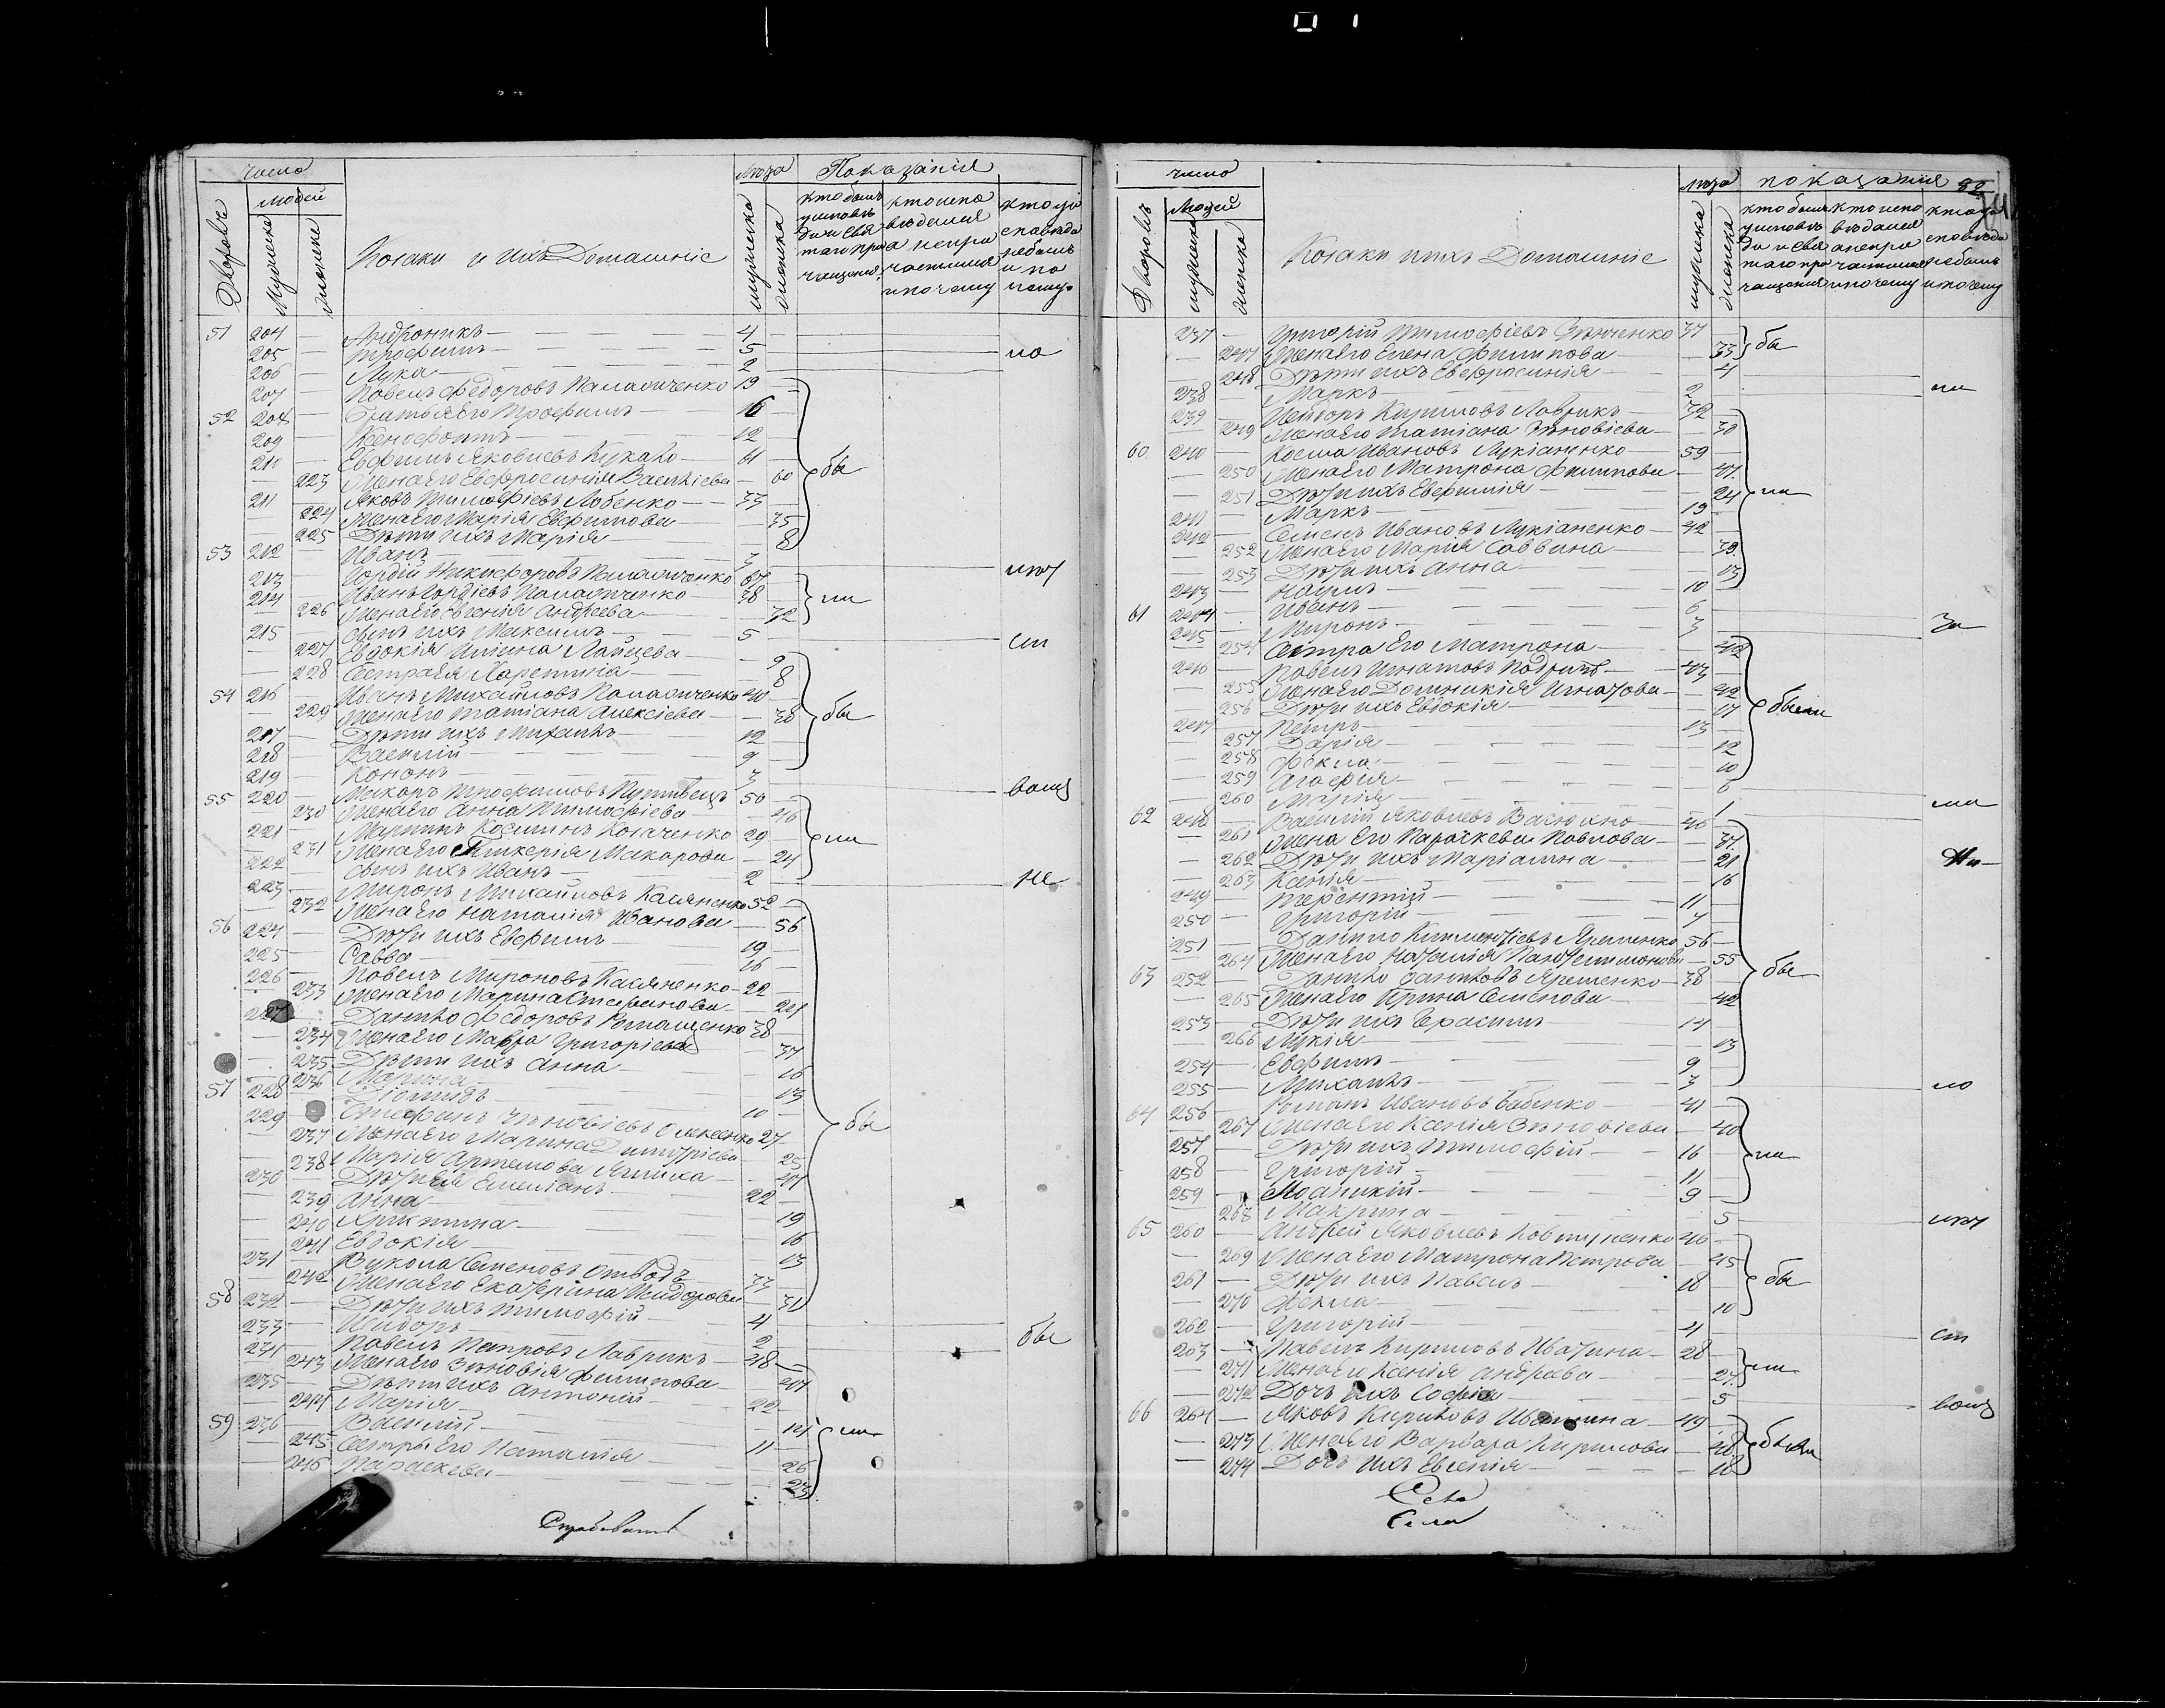 число
людей
Дворовъ
Мужеска
женске
Козаки и ихъ Домашніе
лѣта
мужеска
женска
Показанія
кто былъ у исповѣди и святаго причащенія
кто исповѣдался а непричастился и по чему
кто у исповѣди небылъ и по чему
51 204 — Андроникъ — 4
205 — Трофимъ — 5 — ма
206 — Лука — 2
207 — Павелъ Федоровъ Паламаченко 19
52 208 — Братья его Трофимъ — 16
209 — Ксенофонтъ — 12
210 — Евфимъ Яковлевъ — 61
— 223 Жена его Евфросинія Васильева — 60 бы
211 — Яковъ Тимофіевъ Лобенко — 33
— 224 Жена его Марія Евфимова — 35
— 225 Дѣти ихъ Марія — 8
53 212 — Иванъ — 3
213 — Гордій Никифоровъ Паламаченко 67
214 — Иванъ Гордіевъ Паламаченко — 38 ли
— 226 Жена его Евгенія Андреева — 32
215 — сынъ ихъ Максимъ — 5
— 227 Евдокія Ильина — 9
— 228 Сестра ея — 8
54 216 — Иванъ Михайловъ Паламаченко 40
— 229 Жена его Татіана Алексіева — 38 бы
217 — Дѣти ихъ Михаилъ — 12
218 — Василій — 9
219 — Кононъ — 3
55 220 — Макаръ Трофимовъ 50
— 230 Жена его Анна Тимофіева — 46
221 — Мартинъ Козминъ Козаченко 29 ли
— 231 Жена его Гликерія Макарова — 24
222 — сынъ ихъ Иванъ — 2
223 — Миронъ Михайловъ Касяненко 52 — не
— 232 Жена его Наталія Иванова — 56
56 224 — Дѣти ихъ Евфимъ — 19
225 — Савва — 16
226 — Павелъ Мироновъ Касяненко — 22
— 233 Жена его Марина Стефанова — 21
227 Данило Федоровъ Ромащенко 38
— 234 Жена его Мавра Григоріева — 37
— 235 Дѣти ихъ Анна — 16
— 236 Марина — 13
57 228 — Діомидъ — 10
229 Стефанъ Зѣновіевъ Олексенко 27
— 237 Жена его Марина Димитріева — 25 бы
— 238 Марія Артемова — 47
230 — Дѣти ея Емеліанъ — 22
— 239 Анна — 19
— 240 Христина — 16
— 241 Евдокія — 13
231 — Вукола Семеновъ — 33
— 242 Жена его Екатерина Исидорова — 31
58 232 — Дѣти ихъ Тимофій — 4
233 — Исидоръ — 2
234 — Павелъ Петровъ Лаврикъ — 48 бы
— 243 Жена его Зѣновія Филипова — 47
235 — Дѣти ихъ Антоній — 22
— 244 Марія — 14
59 236 — Василій — 11 ли
— 245 Сестры его Наталія — 26
— 246 Параскева — 23
число
людей
Дворовъ
мужеска
женска
Козаки и ихъ Домашніе
лѣта
мужеска
женска
показанія
кто былъ у исповѣди и святаго причащенія
кто исповѣдался а непричастился и по чему
кто у исповѣди небылъ и по чему
237 — Григорій Тимофіевъ Зѣнченко 37 бы
— 247 Жена его Елена Филипова — 33
— 248 Дѣти ихъ Евфросинія — 4
238 — Маркъ — 2
239 — Исидоръ Кириловъ Лаврикъ — 32
— 249 Жена его Татіана Зѣновіева — 30
60 240 — Косма Ивановъ Лукіаненко — 59
— 250 Жена его Матрона Филипова — 47
— 251 Дѣти ихъ Евфимія — 24
241 — Маркъ — 19 ли
242 — Семенъ Ивановъ Лукіаненко — 42
— 252 Жена его Марія Саввина — 39
— 253 Дѣти ихъ Анна — 13
243 — Наумъ — 10
61 244 — Иванъ — 6
245 — Миронъ — 3 — За
— 254 Сестра его Матрона — 42
246 — Павелъ Игнатовъ — 43
— 255 Жена его Домникія Игнатова — 42
— 256 Дѣти ихъ Евдокія — 17 были
247 — Петръ — 13
— 257 Дарія — 12
— 258 Фекла — 10
— 259 Агафія — 6
— 260 Марія — 1
62 248 — Василій Яковлевъ Васюхно — 46
— 261 Жена его Параскева Павлова — 37
— 262 Дѣти ихъ Маріамна — 21
— 263 Ксенія — 16
249 — Терентій — 11
250 — Григорій — 7
251 — Данило Климентіевъ Яременко 56
— 264 Жена его Наталія Пантелимонова — 55
63 252 — Данило Даниловъ Яременко — 38 бы
— 265 Жена его Ирина Семенова — 42
253 — Дѣти ихъ Герасимъ — 14
— 266 Лукія — 13
254 — Евфимъ — 9
255 — Михаилъ — 3 — ло
64 256 — Романъ Ивановъ Бабенко — 41
— 267 Жена его Ксенія Зѣновіева — 40
257 — Дѣти ихъ Тимофій — 16 ли
258 — Григорій — 11
259 — Іоаникій — 9
— 268 Макрина — 5
65 260 — Андрей Яковлевъ Ковтуненко 46
— 269 Жена его Матрона Петрова — 45
261 — Дѣти ихъ Павелъ — 18 бы
— 270 Фекла — 10
262 — Григорій — 4
263 — Павелъ Кириловъ Ивагина — 28 ли
— 271 Жена его Ксенія Андреева — 27
— 272 Дочь ихъ Софія — 5
66 264 — Яковъ Кириловъ — 49
— 273 Жена его Варвара Кирилова — 48 были
— 274 Дочь ихъ Евгенія — 18
Села